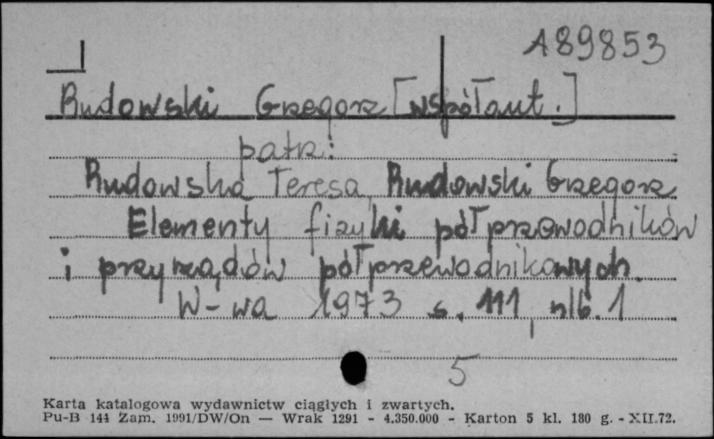 A89853
Rudowski Grzegorz [współaut.]
patrz:
Rudowska Teresa, Rudowski Grzegorz
Elementy fizyki półprzewodników
i przyrządów półprzewodnikowych.
W-wa 1973 s. 111, nlb. 1
5
Karta katalogowa wydawnictw ciągłych i zwartych.
Pu-B 144 Zam. 1991/DW/On — Wrak 1291 - 4.350.000 - Karton 5 kl. 180 g. - XII.72.